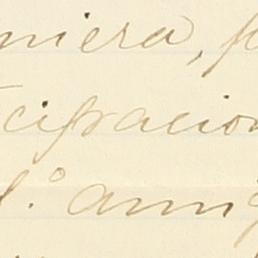 niera, f
cipacion
l.º amig